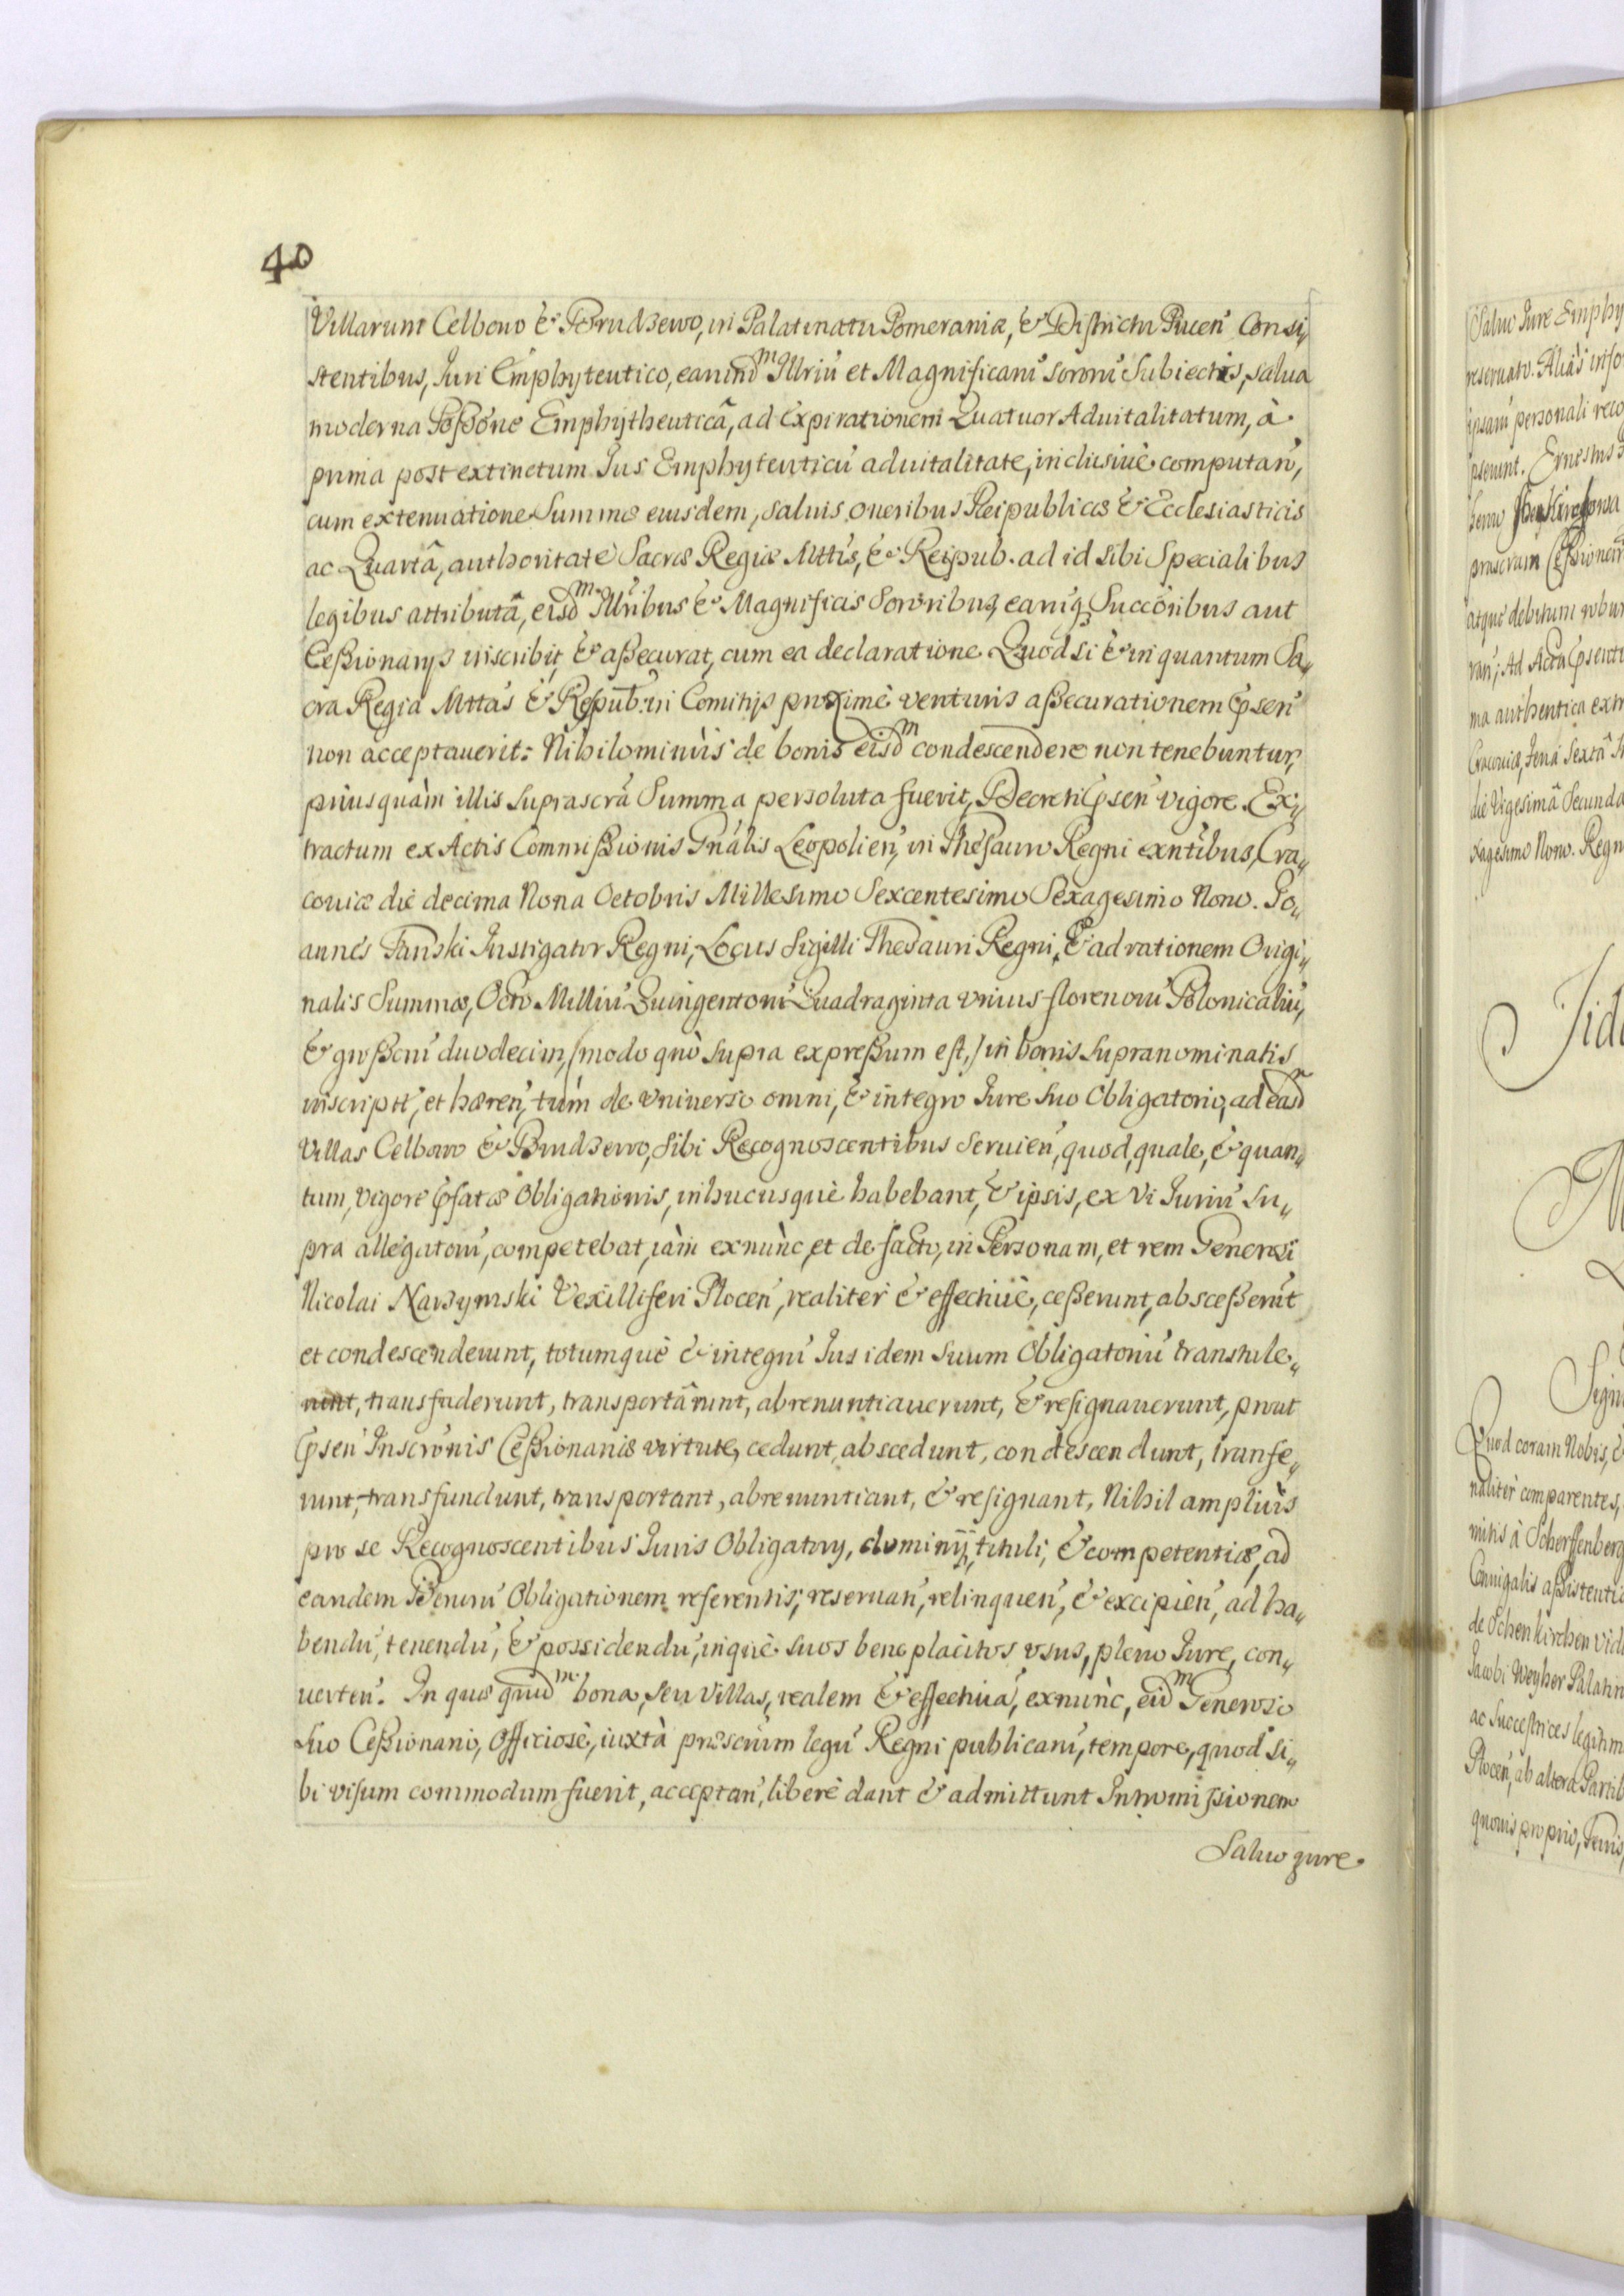 40
Villarum Celbovo & Brudzewo, in Palatinatu Pomeraniæ, & Districtu Pucen̄ Consi„
stentibus, Juri Emphyteutico, earund^m Illriū et Magnificarū Sororū Subiectis, salua
moderna Possōne Emphytheuticâ, ad Expirationem Quatuor Aduitalitatum, à
prima post extinctum Jus Emphyteuticū aduitalitate, inclusiuè computan̄,
cum extenuatione Summæ eiusdem, saluis oneribus Reipublicæ & Ecclesiasticis
ac Quartâ, authoritate Sacræ Regiæ Mttis, & Reipub. ad id sibi Specialibus
legibus attributâ, eisd^m Illribus & Magnificis Sororibus, earūq; Succōribus aut
Ceßionarijs inscribit, & aßecurat, cum ea declaratione. Quod si & in quantum Sa„
cra Regia Mttas & Respub: in Comitijs proximè venturis aßecurationem p̄sen̄
non acceptauerit: Nihilominùs de bonis eisd^m condescendere non tenebuntur,
priusquàm illis suprascrā Summa persoluta fuerit, Decreti p̄sen̄ vigore. Ex„
tractum ex Actis Commißionis Gnālis Leopolien̄, in Thesauro Regni exn̄tibus, Cra„
couiæ die decima Nona Octobris Millesimo Sexcentesimo Sexagesimo Nono. Jo„
annes Tanski Instigator Regni, Locus Sigilli Thesauri Regni, & ad rationem Origi„
nalis Summæ, Octo Milliū Quingentorū Quadraginta vnius florenorū Polonicaliū,
& großorū duodecim, /modo quò supra expreßum est,/ in bonis supranominatis
inscriptæ, et hæren̄, tùm de vniuerso omni, & integro Jure suo Obligatorio, ad easd^m
Villas Celbovo & Brudzewo, sibi Recognoscentibus seruien̄, quod, quale, & quan„
tum, vigore p̄fatæ Obligationis, inhucusquè habebant, & ipsis, ex vi Juriū su„
pra allegatorū, competebat, iàm exnùnc, et de facto, in Personam, et rem Generosi
Nicolai Narzymski Vexilliferi Plocen̄, realiter & effectiuè, ceßerunt, absceßerūt
et condescenderunt, totumquè & integrū Jus idem suum Obligatoriū transtule„
runt, transfuderunt, transportârunt, abrenuntiauerunt, & resignauerunt, prout
p̄sen̄ Inscrōnis Ceßionariæ virtute, cedunt, abscedunt, condescendunt, transfe„
runt, transfundunt, transportant, abrenuntiant, & resignant, Nihil ampliùs
pro se Recognoscentibus Juris Obligatorij, dominij, tituli, & competentiæ, ad
eandem Bonorū Obligationem referentis, reseruan̄, relinquen̄, & excipien̄, ad ha„
bendū, tenendū, & possidendū, inquè suos beneplacitos vsus, pleno Jure, con„
uerten̄. In quæ quid^m bona, seu Villas, realem & effectiuā, exnùnc, eid^m Generoso
suo Ceßionario, Officiosè, iuxtà præscrīum legū Regni publicarū, tempore, quod si„
bi visum commodum fuerit, acceptan̄, liberè dant & admittunt Intromissionem
Saluo jure